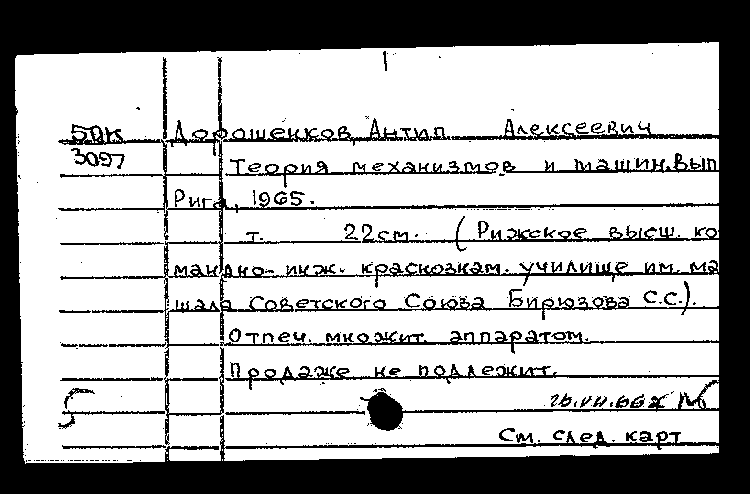 50К Дорошенков, Антип Алексеевич
3097 Теория механизмов и машин. Вып
Рига, 1965.
т. 22см. (Рижское высш. ко
мандно-инж. краснознам. училище им. ма
шала Советского Союза Бирюзова С.С.).
Отпеч. множит. аппаратом.
Продаже не подлежит.
См. след. карт